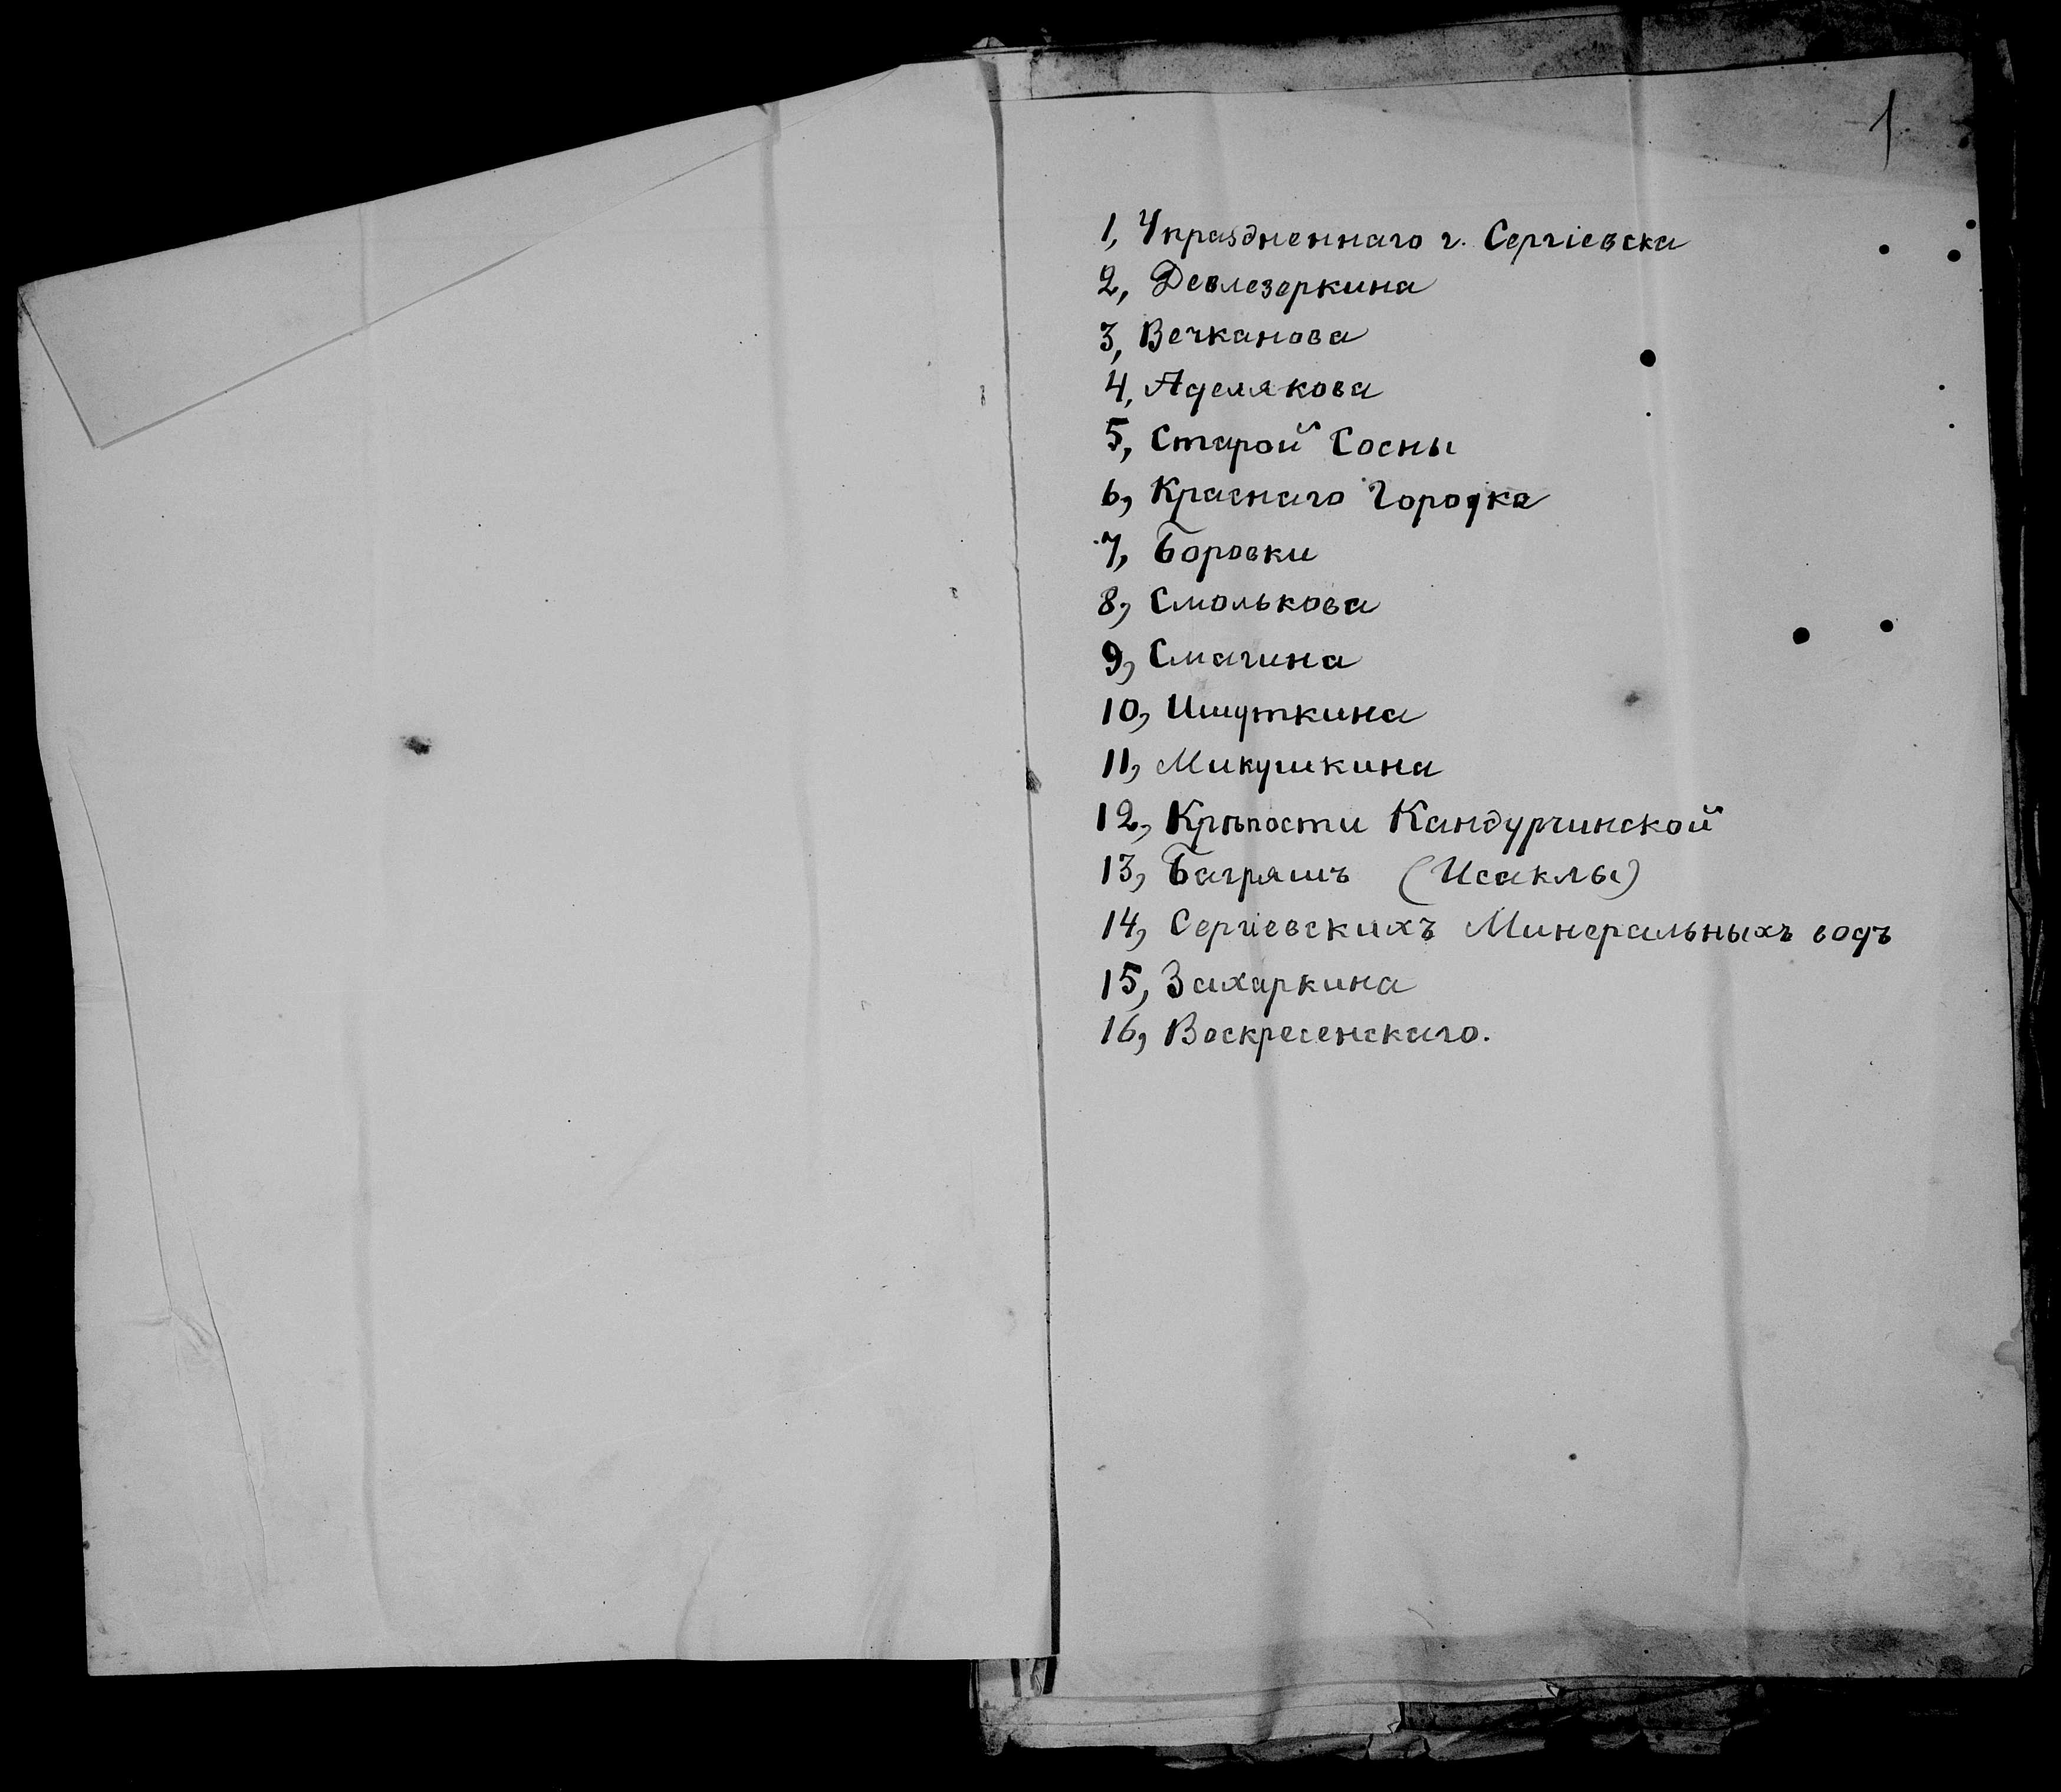 1
1, Упраздненнаго г. Сергіевска
2, Девлезеркина
3, Вечканова
4, Аделякова
5, Старой Сосны
6, Краснаго Городка
7, Боровки
8, Смолькова
9, Смагина
10, Ишуткина
11, Микушкина
12, Крѣпости Кандурчинской
13, Багряшъ (Исаклы)
14, Сергіевскихъ Минеральныхъ водъ
15, Захаркина
16, Воскресенскаго.